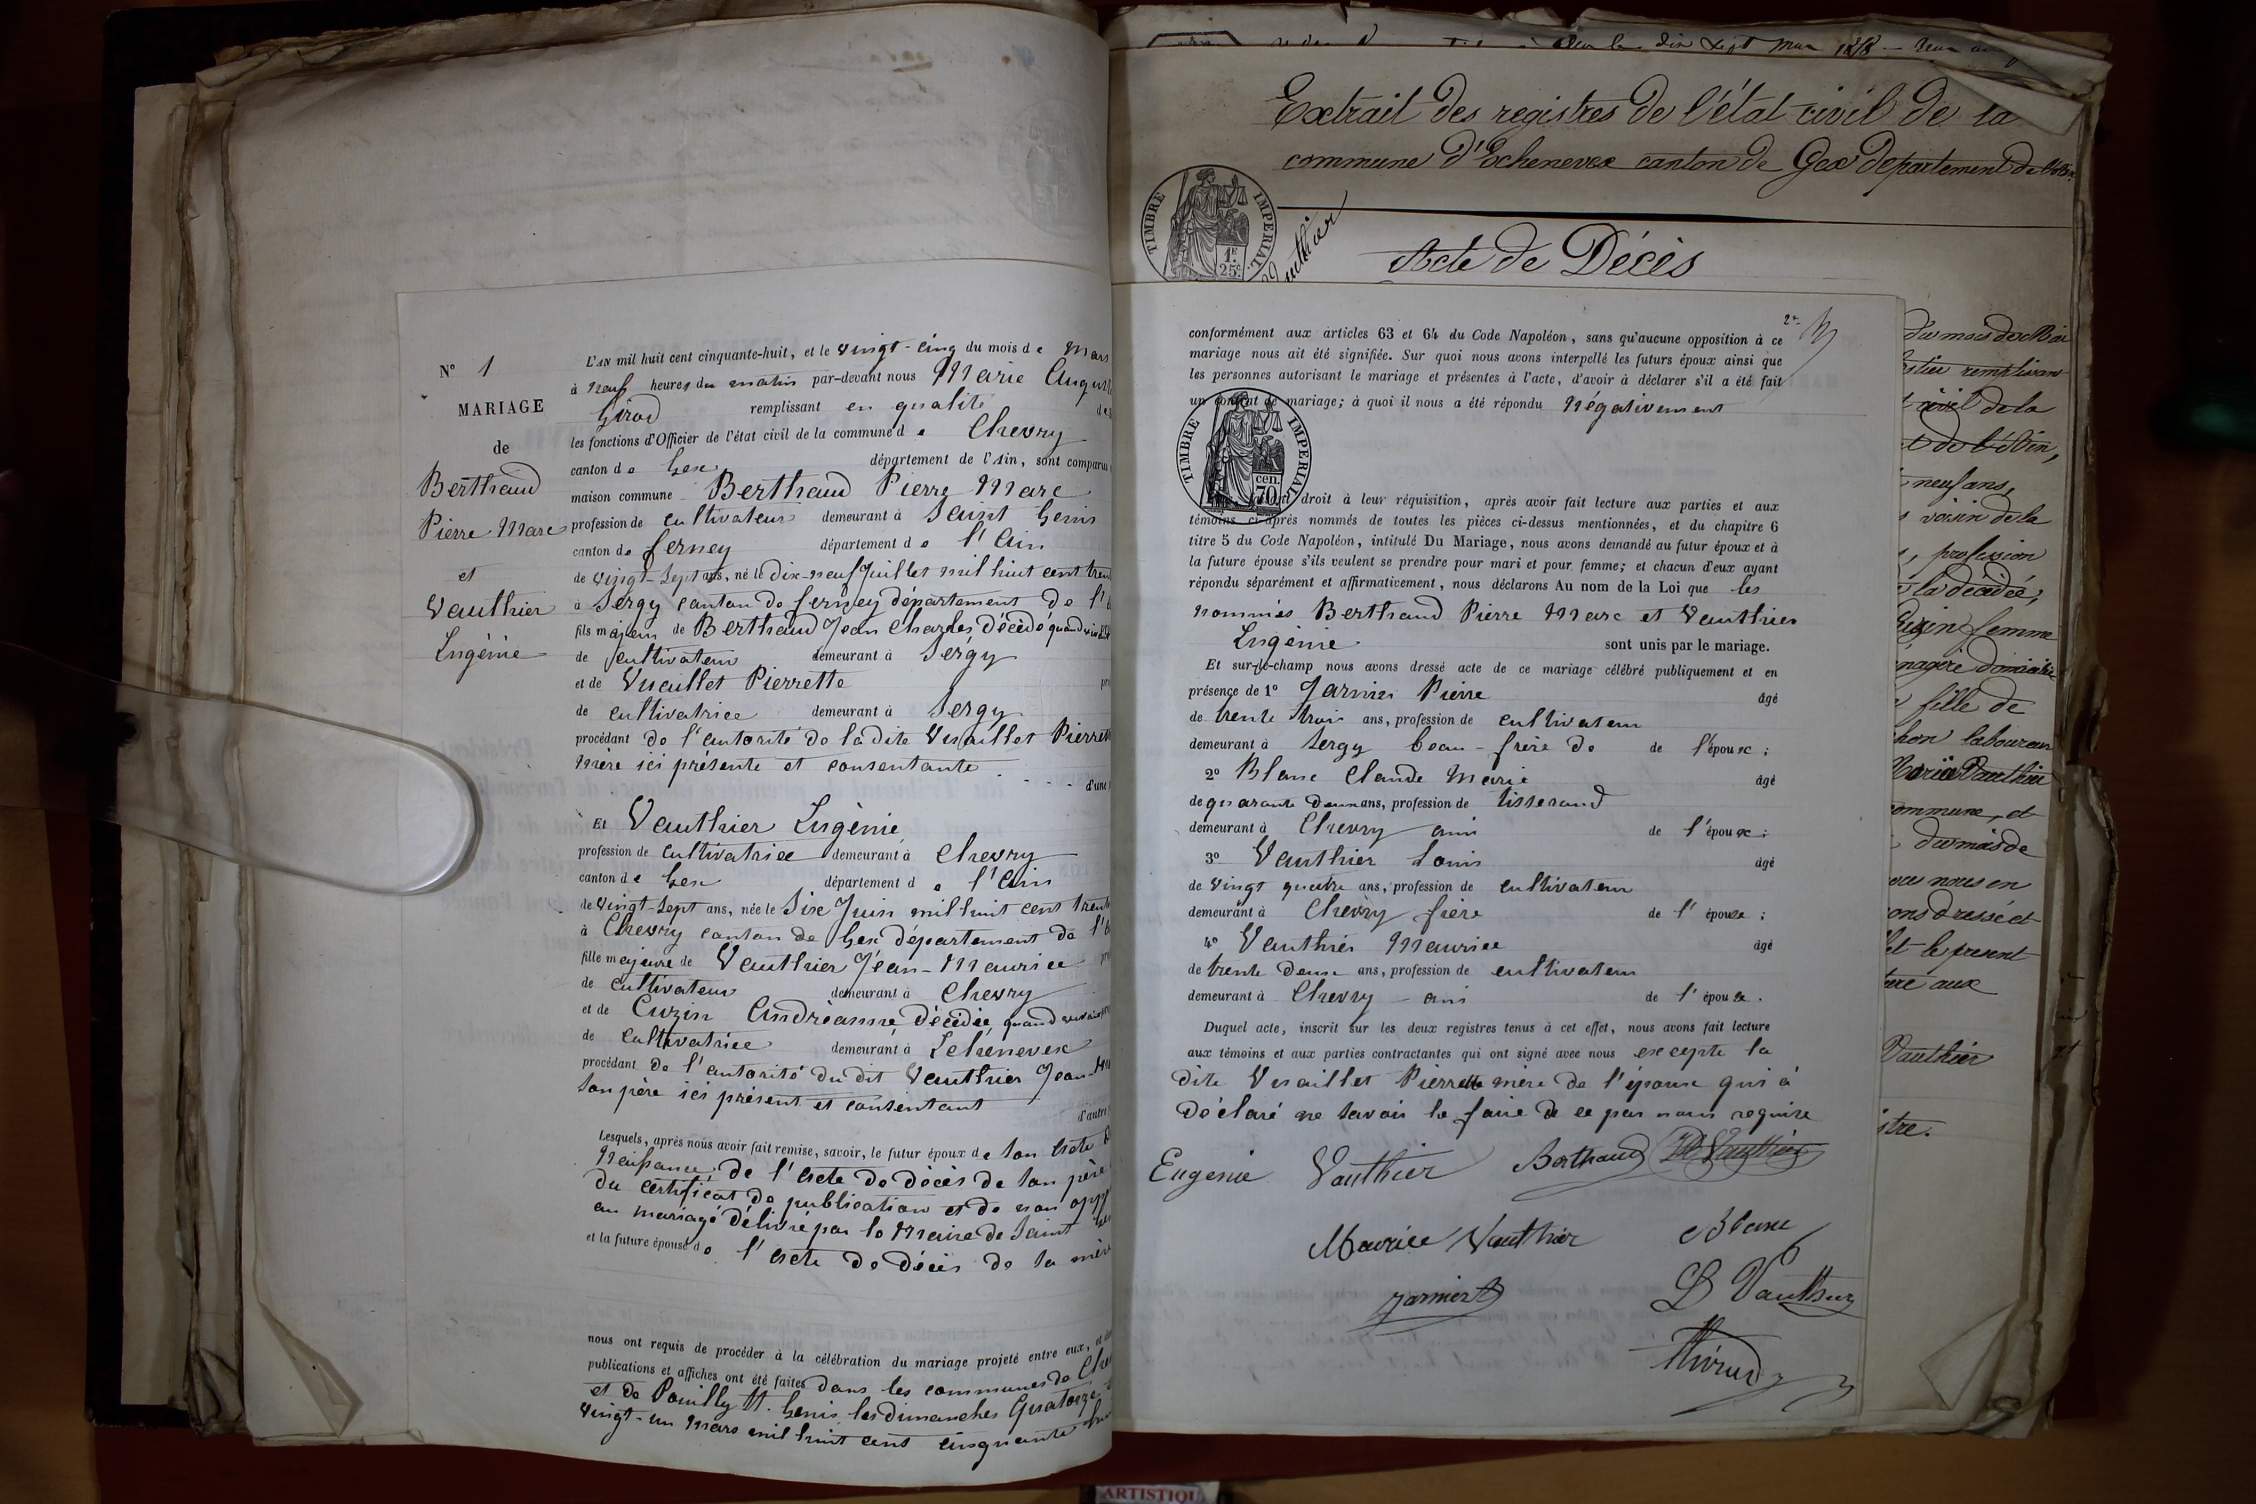 N° 1
MARIAGE
de
Berthaud
Pierre Marc
et
Vauthier
Eugénie
L'AN mil huit cent cinquante-huit, et le vingt-cinq du mois de Mars
à neuf heures du matin par-devant nous Marie August
Girod remplissant en qualité de
les fonctions d'Officier de l'état civil de la commune de Chevry
canton de Gex département de l'Ain, sont comparu
maison commune Berthaud Pierre Marc
profession de cultivateur demeurant à Saint Genis
canton de ferney département de l'Ain
de vingt-sept ans, né le dix-neuf Juillet mil huit cent tren
à Sergy canton de ferney département de l'
fils majeur de Berthaud Jean Charles, décédé quand
de cultivateur demeurant à Sergy
et de Vuaillet Pierrette
de cultivatrice demeurant à Sergy
procédant de l'autorité de la dite Vuaillet Pierrett
mère ici présente et consentante
d'une
Et Vauthier Eugénie
profession de cultivatrice demeurant à Chevry
canton de Gex département de l'Ain
de vingt-sept ans, née le Six Juin mil huit cent trent
à Chevry canton de Gex département de l'
fille majeure de Vauthier Jean-Maurice
de cultivateur demeurant à Chevry
et de Cuzin Andréanne décédée, quand
de cultivatrice demeurant à Echenevex
procédant de l'autorité du dit Vauthier Jean
son père ici présent et consentant
d'autre
Lesquels, après nous avoir fait remise, savoir, le futur époux de son acte
naissance, de l'acte de décès de son père
du certificat de publication et de non opp
au mariage délivré par le Maire de Saint
et la future épouse de l'acte de décès de sa mère
nous ont requis de procéder à la célébration du mariage projeté entre eux,
publications et affiches ont été faites dans les communes de Che
et de Pouilly St. Genis les dimanches Quatorze
vingt-un mars mil huit cent cinquante
Extrait des registres de l'état civil de la
commune d'Echenevex canton de Gex département de l'Ain
TIMBRE IMPERIAL
1F 25c
Vauthier
Acte de Décès
2e
conformément aux articles 63 et 64 du Code Napoléon, sans qu'aucune opposition à ce
mariage nous ait été signifiée. Sur quoi nous avons interpellé les futurs époux ainsi que
les personnes autorisant le mariage et présentes à l'acte, d'avoir à déclarer s'il a été fait
un contrat de mariage; à quoi il nous a été répondu négativement
TIMBRE IMPERIAL
cen. 70
droit à leur réquisition, après avoir fait lecture aux parties et aux
témoins ci-après nommés de toutes les pièces ci-dessus mentionnées, et du chapitre 6
titre 5 du Code Napoléon, intitulé Du Mariage, nous avons demandé au futur époux et à
la future épouse s'ils veulent se prendre pour mari et pour femme; et chacun d'eux ayant
répondu séparément et affirmativement, nous déclarons Au nom de la Loi que les
nommés Berthaud Pierre Marc et Vauthier
Eugénie sont unis par le mariage.
Et sur-le-champ nous avons dressé acte de ce mariage célébré publiquement et en
présence de 1° Jarnier Pierre âgé
de trente trois ans, profession de cultivateur
demeurant à Sergy beau-frère de de l'épouse;
2° Blanc Claude Marie âgé
de quarante deux ans, profession de tisserand
demeurant à Chevry ami de l'épouse;
3° Vauthier Louis âgé
de vingt quatre ans, profession de cultivateur
demeurant à Chevry frère de l'épouse;
4° Vauthier Maurice âgé
de trente deux ans, profession de cultivateur
demeurant à Chevry ami de l'épouse.
Duquel acte, inscrit sur les deux registres tenus à cet effet, nous avons fait lecture
aux témoins et aux parties contractantes qui ont signé avec nous excepté la
dite Vuaillet Pierrette mère de l'époux qui a
déclaré ne savoir le faire de ce par nous requise
Eugenie Vauthier Berthaud Vauthier
Maurice Vauthier Blanc
Jarnier L Vauthier
Girod
du mois de Mai
remplissant
civil de la
de l'Ain,
neuf ans,
voisin de la
profession
la décédée,
Cuzin femme
ménagère domiciliée
fille de
laboureur
Maria Vauthier
commune, et
du mois de
nous en
avons dressé et
et le présent
aux
Vauthier
ARTISTIQU